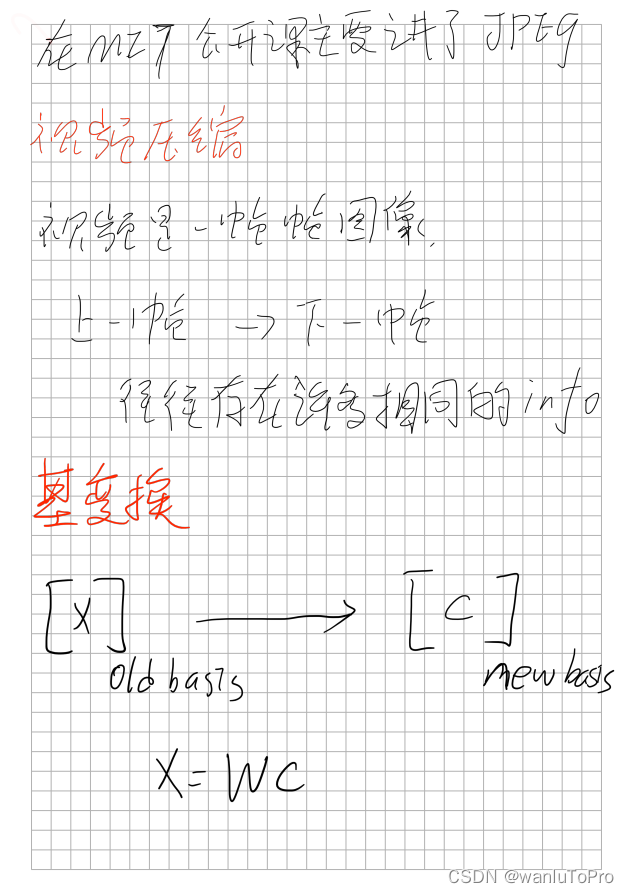 在MIT公开课主要讲了JPEG
视频压缩
视频是一帧帧图像.
上一帧 → 下一帧
往往存在许多相同的info
基变换
[X] → [C]
old basis new basis
X = WC
CSDN @wanluToPro